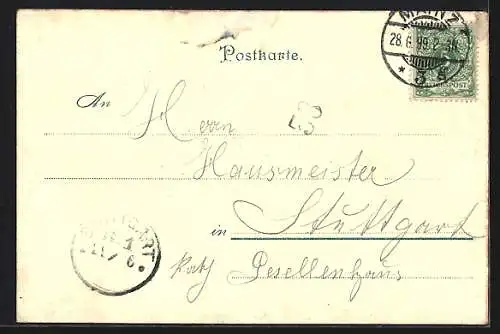 MAINZ
28.6.99. 2-3N.
* 3 a
REICHSPOST
Postkarte.
An Herrn
Hausmeister
in Stuttgart
Kath Gesellenhaus
STUTTGART